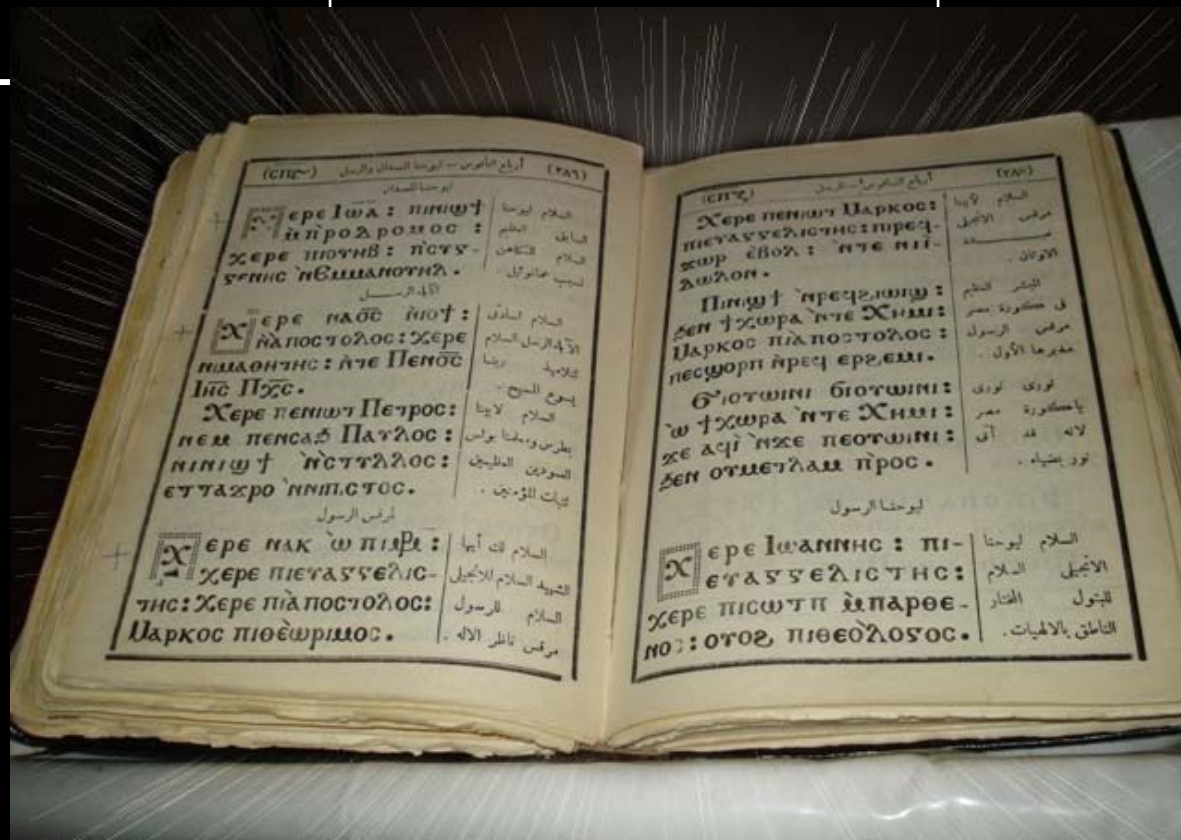 (ⲥⲡⲋ) أرباع الناقوس — ليوحنا المعمدان والرسل (٢٨٦)
ليوحنا المعمدان
Ⲭⲉⲣⲉ Ⲓⲱ̅ⲁ̅ : ⲡⲓⲛⲓϣϯ
ⲙ̀ⲡⲣⲟⲇⲣⲟⲙⲟⲥ :
ⲭⲉⲣⲉ ⲡⲓⲟⲩⲏⲃ : ⲡ̀ⲥⲩⲅ-
ⲅⲉⲛⲏⲥ ⲛ̀Ⲉⲙⲙⲁⲛⲟⲩⲏⲗ .
السلام ليوحنا
السابق العظيم
السلام للكاهن
نسيب عمانوئيل .
لآبائنا الرســل
Ⲭⲉⲣⲉ ⲛⲁⲟ̅ⲥ̅ ⲛ̀ⲓⲟϯ :
ⲛ̀ⲁ̀ⲡⲟⲥⲧⲟⲗⲟⲥ : ⲭⲉⲣⲉ
ⲛⲓⲙⲁⲑⲏⲧⲏⲥ : ⲛ̀ⲧⲉ Ⲡⲉⲛⲟ̅ⲥ̅
Ⲓⲏ̅ⲥ̅ Ⲡⲭ̅ⲥ̅.
السلام لسادتى
الآباء الرسل السلام
لتلاميذ ربنا
يسوع المسيح .
Ⲭⲉⲣⲉ ⲡⲉⲛⲓⲱⲧ Ⲡⲉⲧⲣⲟⲥ :
ⲛⲉⲙ ⲡⲉⲛⲥⲁϧ Ⲡⲁⲩⲗⲟⲥ :
ⲛⲓⲛⲓϣϯ ⲛ̀ⲥⲧⲩⲗⲗⲟⲥ :
ⲉⲧⲧⲁϫⲣⲟ ⲛ̀ⲛⲓⲡⲓⲥⲧⲟⲥ.
السلام لأبينا
بطرس ومعلمنا بولس
العمودين العظيمين
لثبات المؤمنين .
لمرقس الرسول
Ⲭⲉⲣⲉ ⲛⲁⲕ ⲱ̀ ⲡⲓⲙⲣ̅ :
ⲭⲉⲣⲉ ⲡⲓⲉⲩⲁⲅⲅⲉⲗⲓⲥ-
ⲧⲏⲥ : ⲭⲉⲣⲉ ⲡⲓⲁ̀ⲡⲟⲥⲧⲟⲗⲟⲥ :
Ⲙⲁⲣⲕⲟⲥ ⲡⲓⲑⲉⲱ̀ⲣⲓⲙⲟⲥ.
السلام لك أيها
الشهيد السلام للانجيلى
السلام للرسول
مرقس ناظر الاله .
(ⲥⲡⲍ) أرباع الناقوس — للرسل
Ⲭⲉⲣⲉ ⲡⲉⲛⲓⲱⲧ Ⲙⲁⲣⲕⲟⲥ :
ⲡⲓⲉⲩⲁⲅⲅⲉⲗⲓⲥⲧⲏⲥ : ⲡⲓⲣⲉϥ-
ⲭⲱⲣ ⲉ̀ⲃⲟⲗ : ⲛ̀ⲧⲉ ⲛⲓⲓ̀-
ⲇⲱⲗⲟⲛ.
السلام لأبينا
مرقس الانجيلى
الاوثان .
Ⲡⲓⲛⲓϣϯ ⲛ̀ⲣⲉϥϩⲓⲱⲓϣ :
ϧⲉⲛ ϯⲭⲱⲣⲁ ⲛ̀ⲧⲉ Ⲭⲏⲙⲓ :
Ⲙⲁⲣⲕⲟⲥ ⲡⲓⲁ̀ⲡⲟⲥⲧⲟⲗⲟⲥ :
ⲡⲉⲥϣⲟⲣⲡ ⲛ̀ⲣⲉϥ ⲉⲣϩⲉⲙⲓ.
المبشر العظيم
فى كورة مصر
مرقس الرسول
مدبرها الأول .
Ϭⲓⲟⲩⲱⲓⲛⲓ ϭⲓⲟⲩⲱⲓⲛⲓ :
ⲱ̀ ϯⲭⲱⲣⲁ ⲛ̀ⲧⲉ Ⲭⲏⲙⲓ :
ϫⲉ ⲁϥⲓ̀ ⲛ̀ϫⲉ ⲡⲉⲟⲩⲱⲓⲛⲓ :
ϧⲉⲛ ⲟⲩⲙⲉⲧⲗⲁⲙⲡⲣⲟⲥ .
نورى نورى
يا كورة مصر
لانه قد أتى
نور بضياء .
ليوحنا الرسول
Ⲭⲉⲣⲉ Ⲓⲱⲁⲛⲛⲏⲥ : ⲡⲓ-
ⲉⲩⲁⲅⲅⲉⲗⲓⲥⲧⲏⲥ :
ⲭⲉⲣⲉ ⲡⲓⲥⲱⲧⲡ ⲙ̀ⲡⲁⲣⲑⲉ-
ⲛⲟⲥ : ⲟⲩⲟϩ ⲡⲓⲑⲉⲟ̀ⲗⲟⲅⲟⲥ.
السلام ليوحنا
الانجيلى السلام
للبتول المختار
الناطق بالالهيات.